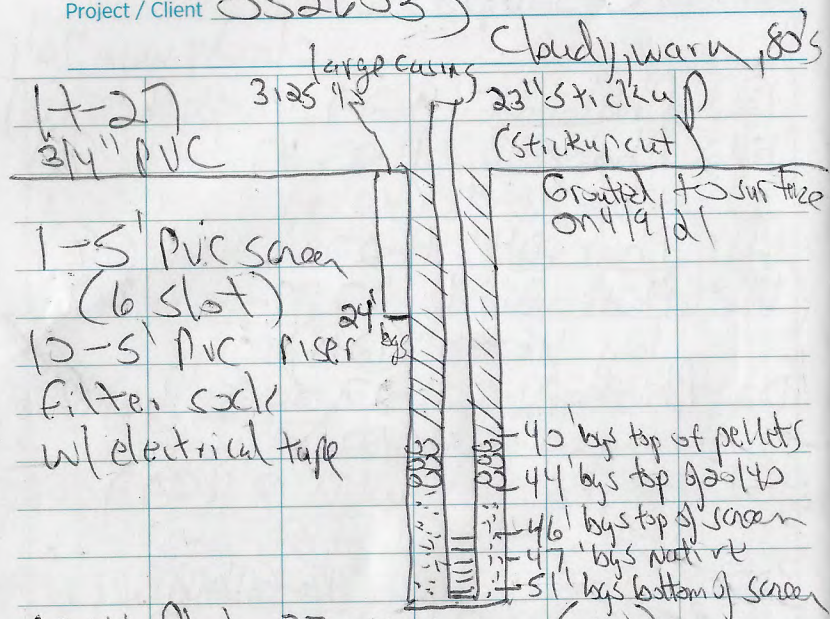 Project / Client
Cloudy, warm, 80's
large casing
3.25"
23" Stickup
(Stickup cut)
3/4" PVC
Grouted to surface
on 4/9/21
1-5' PVC screen
(6 slot)
24'
bgs
10-5' PVC riser
filter sock
w/ electrical tape
40' bgs top of pellets
44' bgs top of 20/40
46' bgs top of screen
47' bgs native
51' bgs bottom of screen